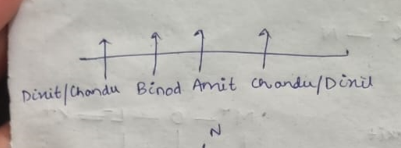 Dinit/Chandu Binod Amit Chandu/Dinit
N